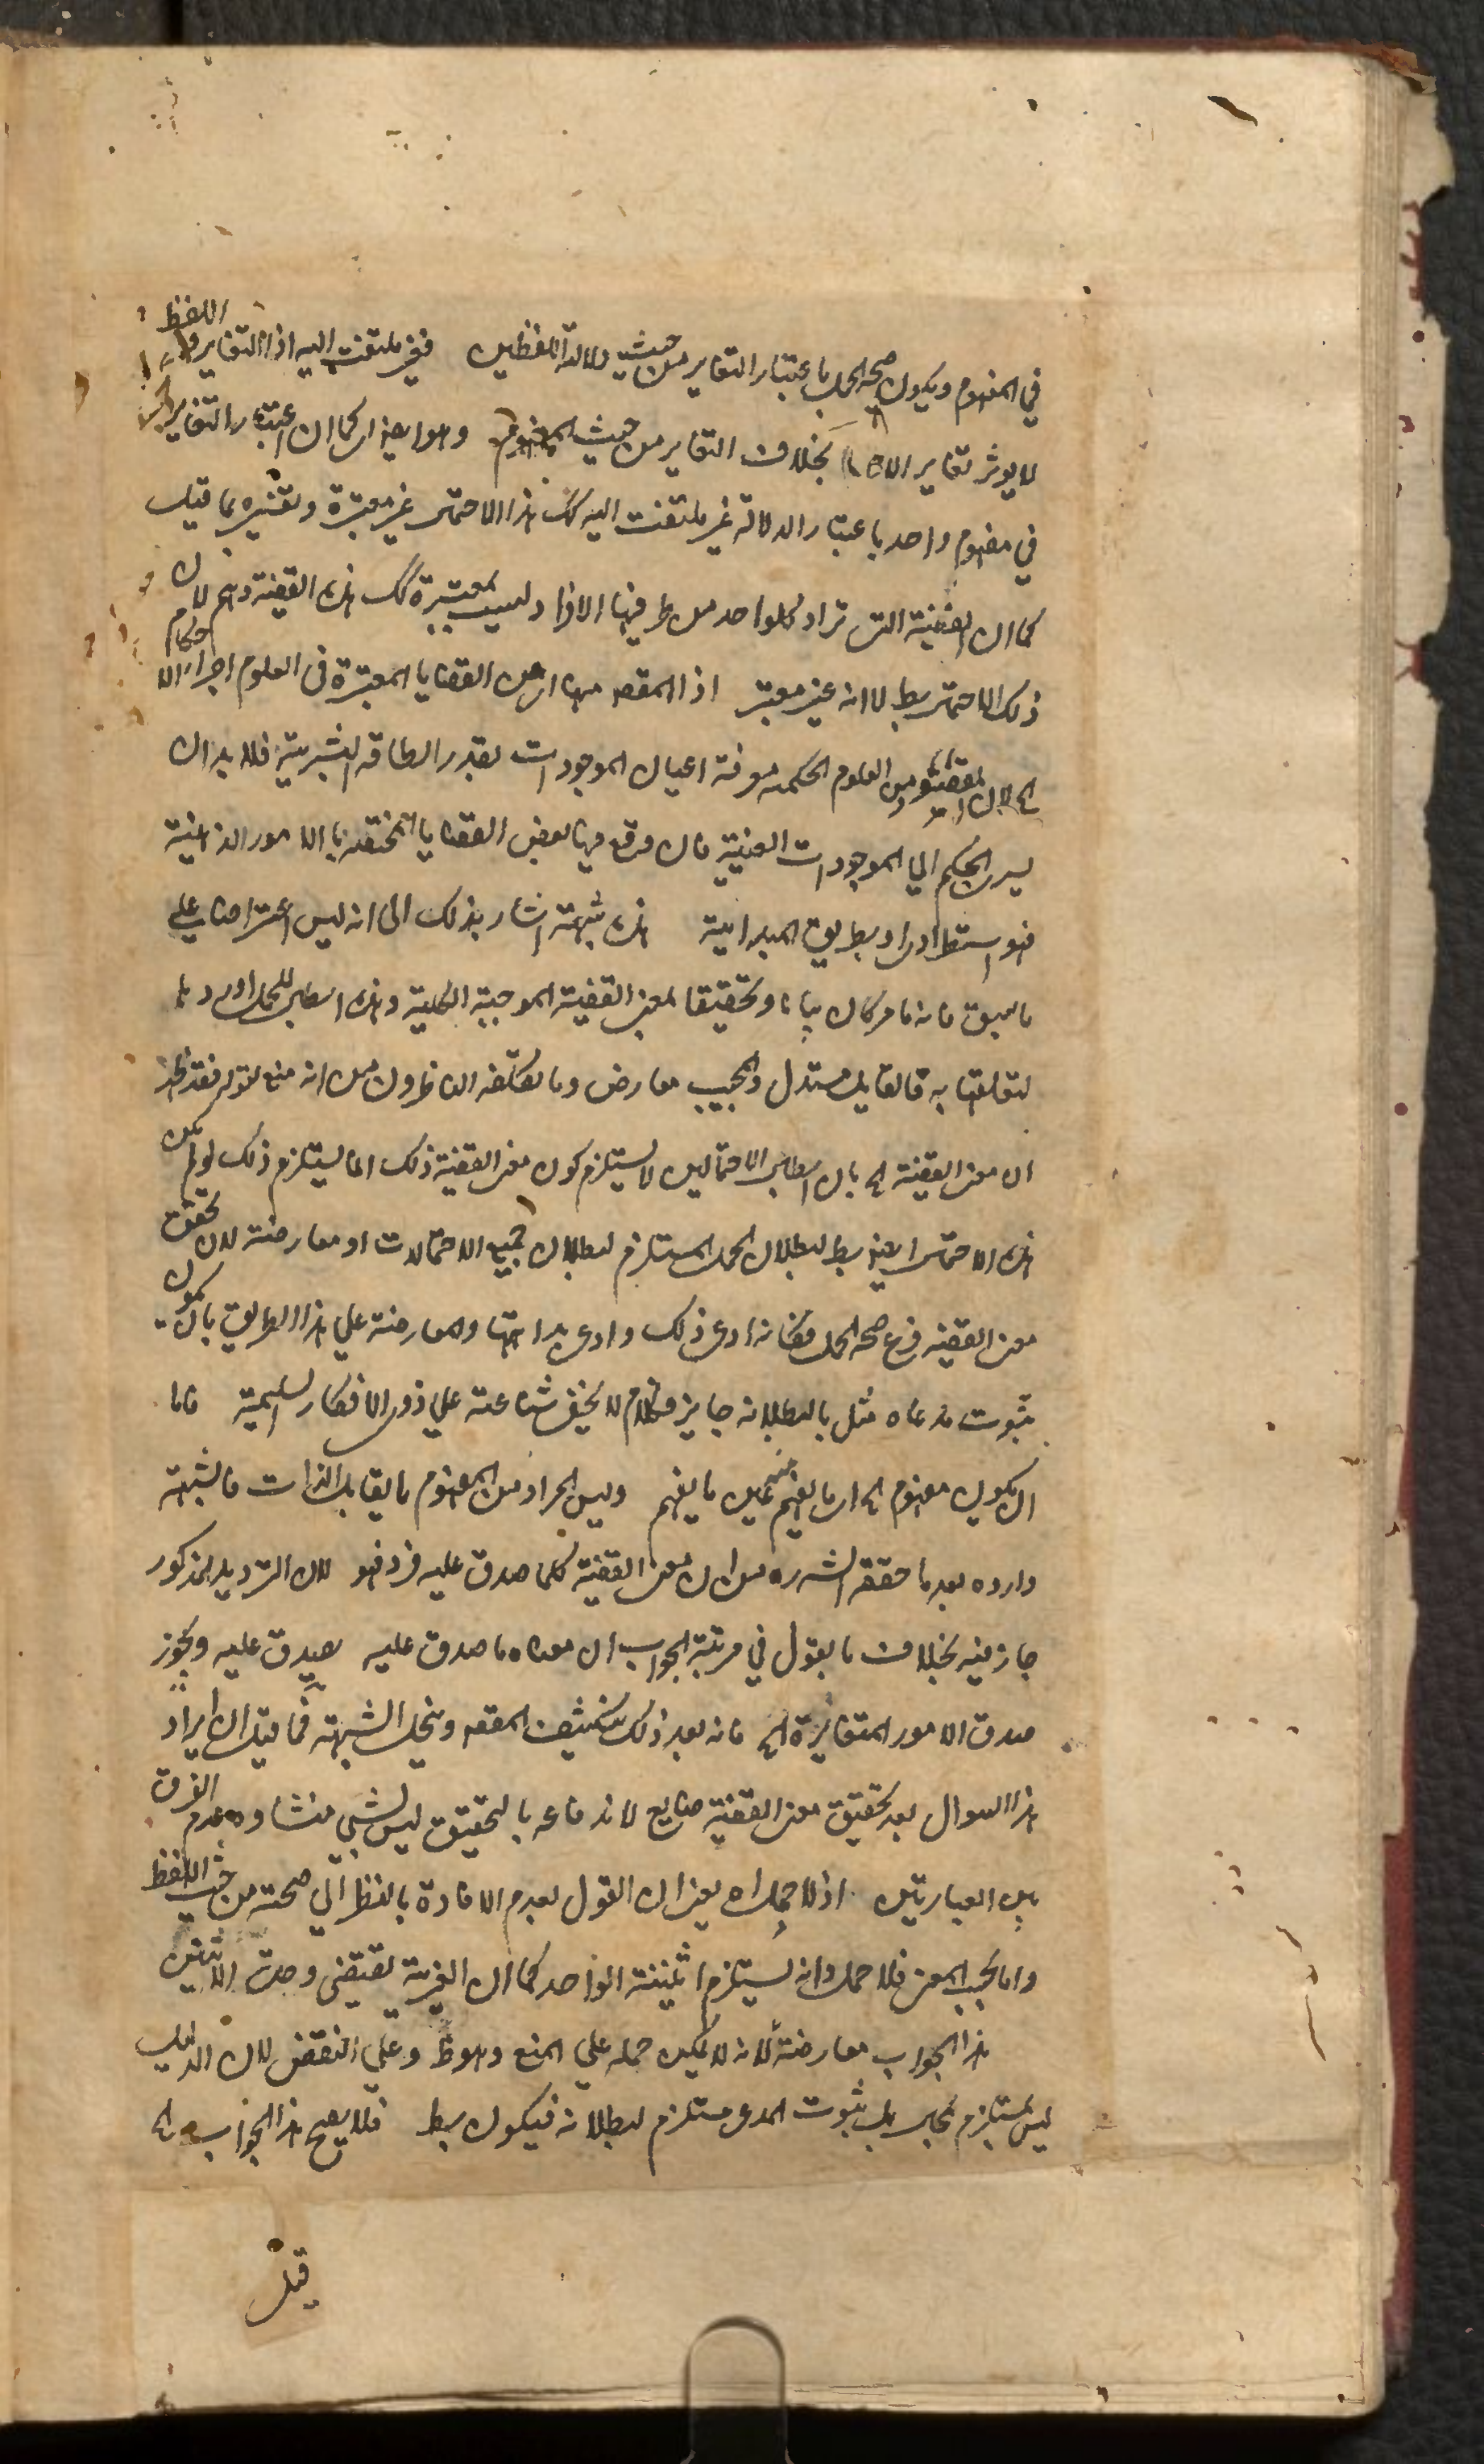 في المفهوم ويكون صحة الحمل باعتبار التغاير من حيث دلالة اللفظين فغير ملتفت اليه اذ التغاير في اللفظ
لا يوثر تغاير بخلاف التغاير من حيث المفهوم وهو ايضا كما ان اعتبار التغاير
في مفهوم واحد باعتبار الدلالة غير ملتفت اليه كك هذا الاحتمال غير معتبرة وتفسيره بما قيل
كما ان القضية التي تراد كلواحد من طرفيها الافراد ليست بمعتبرة كك هذه القضية وهم لان
ذلك الاحتمال بط لا انه غير معتبر اذ المقصد منها اي من القضايا المعتبرة في العلوم اجراء الاحكام
الخ لان المقصود من العلوم الحكمية معرفة اعيان الموجودات بقدر الطاقة البشرية فلا بد ان
يسرى الحكم الي الموجودات العينية فان وقع فيها بعض القضايا المختصة بالامور الذهنية
فهو استطرادى او بطريق المبدائية هذه شبهة اشار بذلك الى انه ليس اعتراضا على
ما سبق فانه ما مر كان بيانا وتحقيقا لمعنى القضية الموجبة الكلية وهذه ابطال للحمل اورد ها
لتعلقها به فالقايل مستدل والمجيب معارض وما تكلفه الناظرون من انه منع لقوله فقد ظهر
ان معنى القضية الخ بان ابطال الاحتمالين لا يستلزم كون معنى القضية ذلك انما يستلزم ذلك لو لم يكن
هذه الاحتمال ايضا بط لبطلان الحمل المستلزم لبطلان جميع الاحتمالات او معارضة لان تحقق
معنى القضية فرع صحة الحمل فكانه ادعى ذلك وادعى بداهتها والمعارضة علي هذا الطريق بان يكون
ثبوت مدعاه مثل بالبطلانه جايز فكلام لا يخفى شناعته علي ذوى الافكار السليمة فاما
ان يكون مفهوم الخ اى ما يفهم منه عين ما يفهم وليس المراد من المفهوم ما يقابل الذات فالشبهة
وارده بعد ما حققه الشه ره من ان معنى القضية كلما صدق عليه فرد فهو لان الترديد المذكور
جاز فيه بخلاف ما يقول في مرتبة الجواب ان معناه ما صدق عليه يصدق عليه ويجوز
صدق الامور المتغايرة الخ فانه بعد ذلك ينكشف المقصد وينحل الشبهة فما قيل ان ايراد
هذا السوال بعد تحقيق معنى القضية ضايع لاندفاعه بالتحقيق ليس بشي منشاوه عدم الفرق
بين العبارتين اذ لا حمل اه يعنى ان القول بعدم الافادة بالنظر الي صحته من حيث اللفظ
واما بحسب المعنى فلا حمل وانه يستلزم اثنينية الواحد كما ان الغيرية تقتضى وحدت الاثنين
هذا الجواب معارضة لانه لا يمكن حمله علي المنع وهو ظ وعلي النقض لان الدليل
ليس بمستلزم لمحال بل ثبوت المدعى مستلزم لبطلانه فيكون بط فلا يصح هذا الجواب الخ
قيل